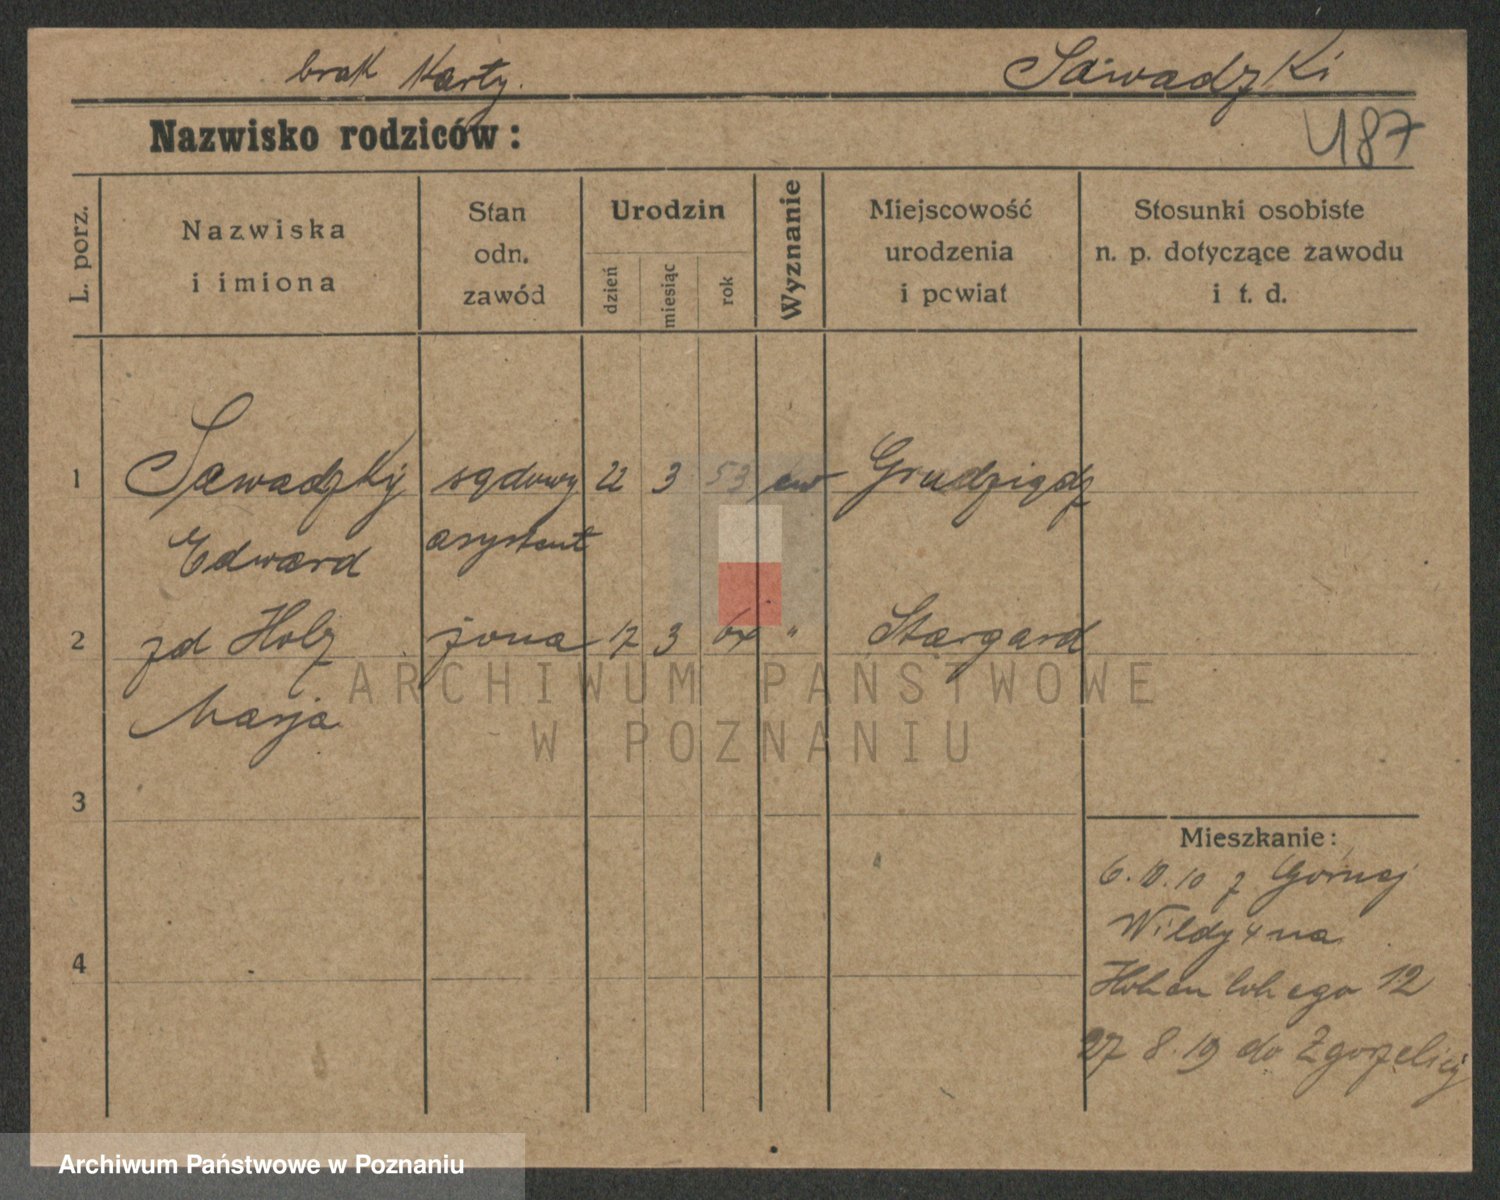 brak Karty. Sawadzki
487
Nazwisko rodziców:
L. porz.
Nazwiska
i imiona
Stan
odn.
zawód
Urodzin
dzień
miesiąc
rok
Wyznanie
Miejscowość
urodzenia
i powiat
Stosunki osobiste
n. p. dotyczące zawodu
i t. d.
1 Sawadzky sądowy 22 3 53 ew Grudziądz
Edward asystent
2 zd Holz żona 17 3 " Stargard
Marja
ARCHIWUM PAŃSTWOWE
W POZNANIU
3
Mieszkanie:
6. 10 z Górnej
Wildy 4 na
4
Hohenlohego 12
27 8. 19 do Zgorzelicy
Archiwum Państwowe w Poznaniu